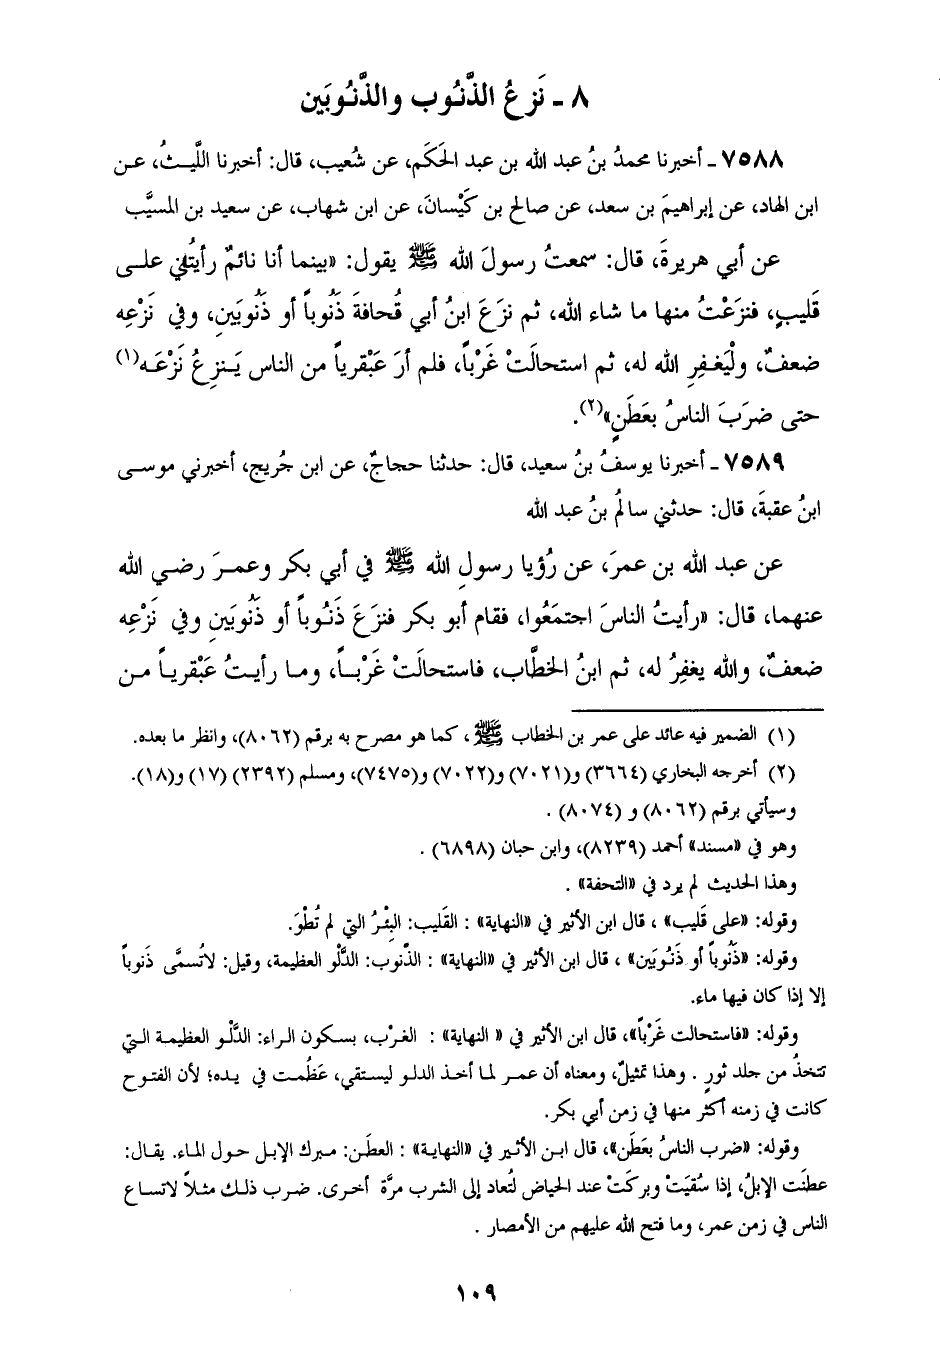 ٨ - نَزعُ الذَّنُوب والذَّنُوبَين
٧٥٨٨ - أخبرنا محمدُ بنُ عبد الله بن عبد الحَكَم، عن شُعيب، قال: أخبرنا اللَّيثُ، عن
ابن الهاد، عن إبراهيمَ بن سعد، عن صالح بن كَيْسانَ، عن ابن شهاب، عن سعيد بن المسيَّب
عن أبي هريرةَ، قال: سمعتُ رسولَ الله ﷺ يقول: «بينما أنا نائمٌ رأيتُني على
قَليبٍ، فنزَعْتُ منها ما شاء الله، ثم نزَعَ ابنُ أبي قُحافةَ ذَنُوباً أو ذَنُوبَينِ، وفي نَزْعِه
ضعفٌ، ولْيَغفِرِ الله له، ثم استحالَتْ غَرْباً، فلم أرَ عَبْقرياً من الناس يَنزِعُ نَزْعَه(١)
حتى ضرَبَ الناسُ بعَطَنٍ»(٢).
٧٥٨٩ - أخبرنا يوسفُ بنُ سعيد، قال: حدثنا حجاجٌ، عن ابن جُريج، أخبرني موسى
ابنُ عقبةَ، قال: حدثني سالمُ بنُ عبد الله
عن عبد الله بن عمرَ، عن رُؤيا رسولِ الله ﷺ في أبي بكر وعمرَ رضي الله
عنهما، قال: «رأيتُ الناسَ اجتمَعُوا، فقام أبو بكر فنزَعَ ذَنُوباً أو ذَنُوبَينِ وفي نَزْعِه
ضعفٌ، والله يغفِرُ له، ثم ابنُ الخطَّاب، فاستحالَتْ غَرْباً، وما رأيتُ عَبْقرياً من
(١) الضمير فيه عائد على عمر بن الخطاب ﷺ، كما هو مصرح به برقم (٨٠٦٢)، وانظر ما بعده.
(٢) أخرجه البخاري (٣٦٦٤) و(٧٠٢١) و(٧٠٢٢) و(٧٤٧٥)، ومسلم (٢٣٩٢) (١٧) و(١٨).
وسيأتي برقم (٨٠٦٢) و (٨٠٧٤) .
وهو في «مسند» أحمد (٨٢٣٩)، وابن حبان (٦٨٩٨) .
وهذا الحديث لم يرد في «التحفة» .
وقوله: «على قَليب» ، قال ابن الأثير في «النهاية» : القَليب: البِئْرُ التي لم تُطوَ.
وقوله: «ذَنُوباً أو ذَنُوبَين» ، قال ابن الأثير في «النهاية» : الذَّنوب: الدَّلْو العظيمة، وقيل: لاتُسمَّى ذَنوباً
إلا إذا كان فيها ماء.
وقوله: «فاستحالت غَرْباً»، قال ابن الأثير في « النهاية» : الغرْب، بسكون الراء: الدَّلْو العظيمة التي
تتخذُ من جلد ثورٍ . وهذا تمثيلٌ، ومعناه أن عمر لما أخذ الدلو ليستقي، عَظُمت في يده؛ لأن الفتوح
كانت في زمنه أكثر منها في زمن أبي بكر.
وقوله: «ضرب الناسُ بعَطَن»، قال ابن الأثير في «النهاية» : العطَن: مبرك الإبل حول الماء. يقال:
عطنَت الإبلُ، إذا سُقيَتْ وبركَتْ عند الحياض لتُعاد إلى الشرب مرَّة أخرى. ضرب ذلك مثلاً لاتساع
الناس في زمن عمر، وما فتح الله عليهم من الأمصار .
١٠٩